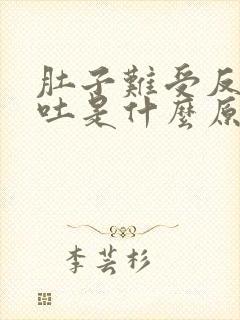 肚子難受反
吐是什麼原
李芸杉